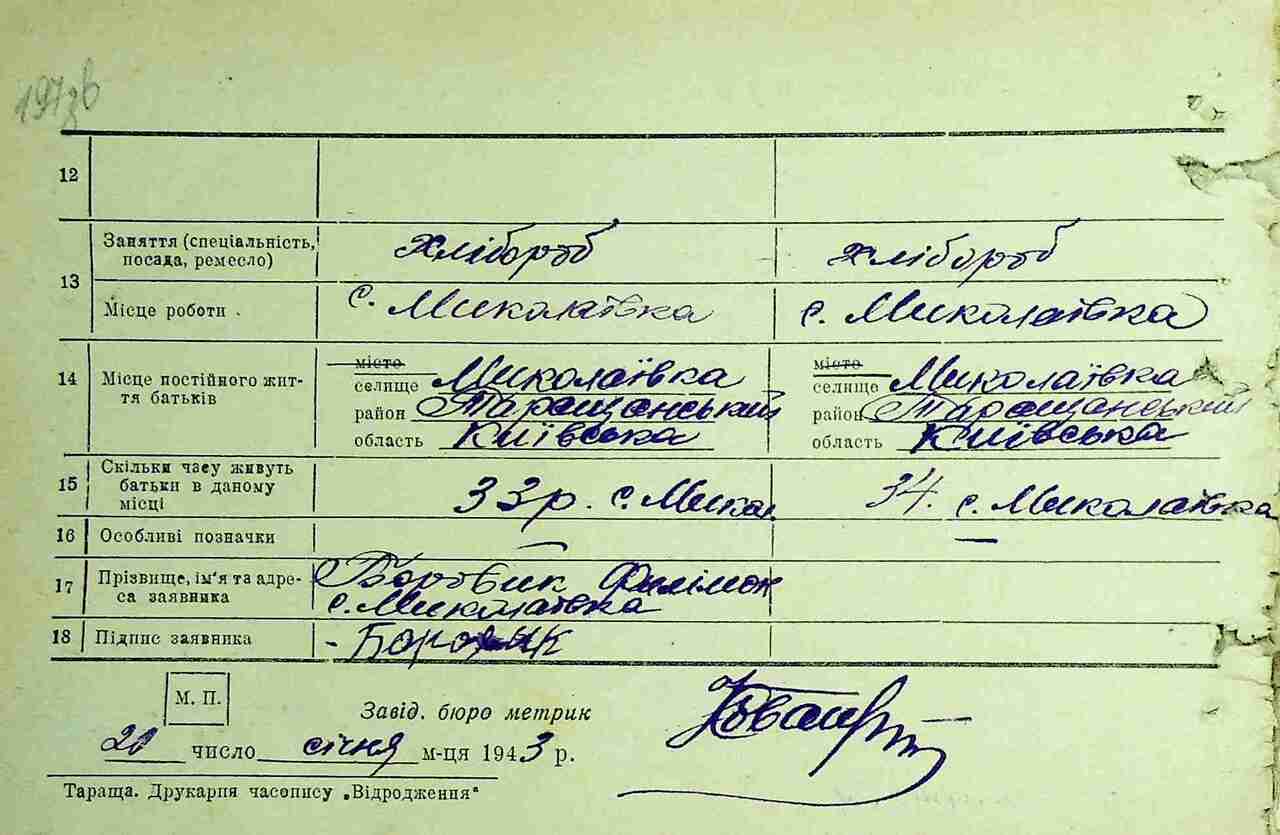 197зв
12
13 Заняття (спеціальність, посада, ремесло) хлібороб хлібороб
Місце роботи . с. Миколаївка с. Миколаївка
14 Місце постійного жит-
тя батьків
місто місто
селище Миколаївка селище Миколаївка
район Таращанський район Таращанський
область Київська область Київська
15 Скільки часу живуть
батьки в даному
місці
33 р. с. Микол 34. с. Миколаївка
16 Особливі позначки — —
17 Прізвище, ім'я та адре-
са заявника
Боровик Филімон
с. Миколаївка
18 Підпис заявника - Боровик
М. П.
Завід. бюро метрик
20 число січня м-ця 1943 р.
Тараща. Друкарня часопису „Відродження"